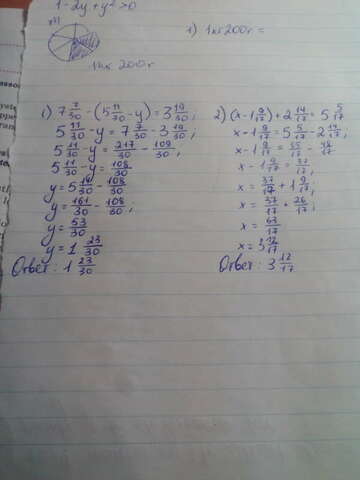 1-2y+y²>0
1) 1кг200г =
1кг 200г
1) 7 7/30 - (5 11/30 - y) = 3 19/30;
5 11/30 - y = 7 7/30 - 3 19/30;
5 11/30 - y = 217/30 - 109/30;
5 11/30 - y = 108/30
y = 5 11/30 - 108/30
y = 161/30 - 108/30
y = 53/30
y = 1 23/30
Ответ: 1 23/30
2) (x - 1 9/17) + 2 14/17 = 5 5/17
x - 1 9/17 = 5 5/17 - 2 14/17;
x - 1 9/17 = 85/17 - 48/17
x - 1 9/17 = 37/17;
x = 37/17 + 1 9/17
x = 37/17 + 26/17;
x = 63/17
x = 3 12/17
Ответ: 3 12/17